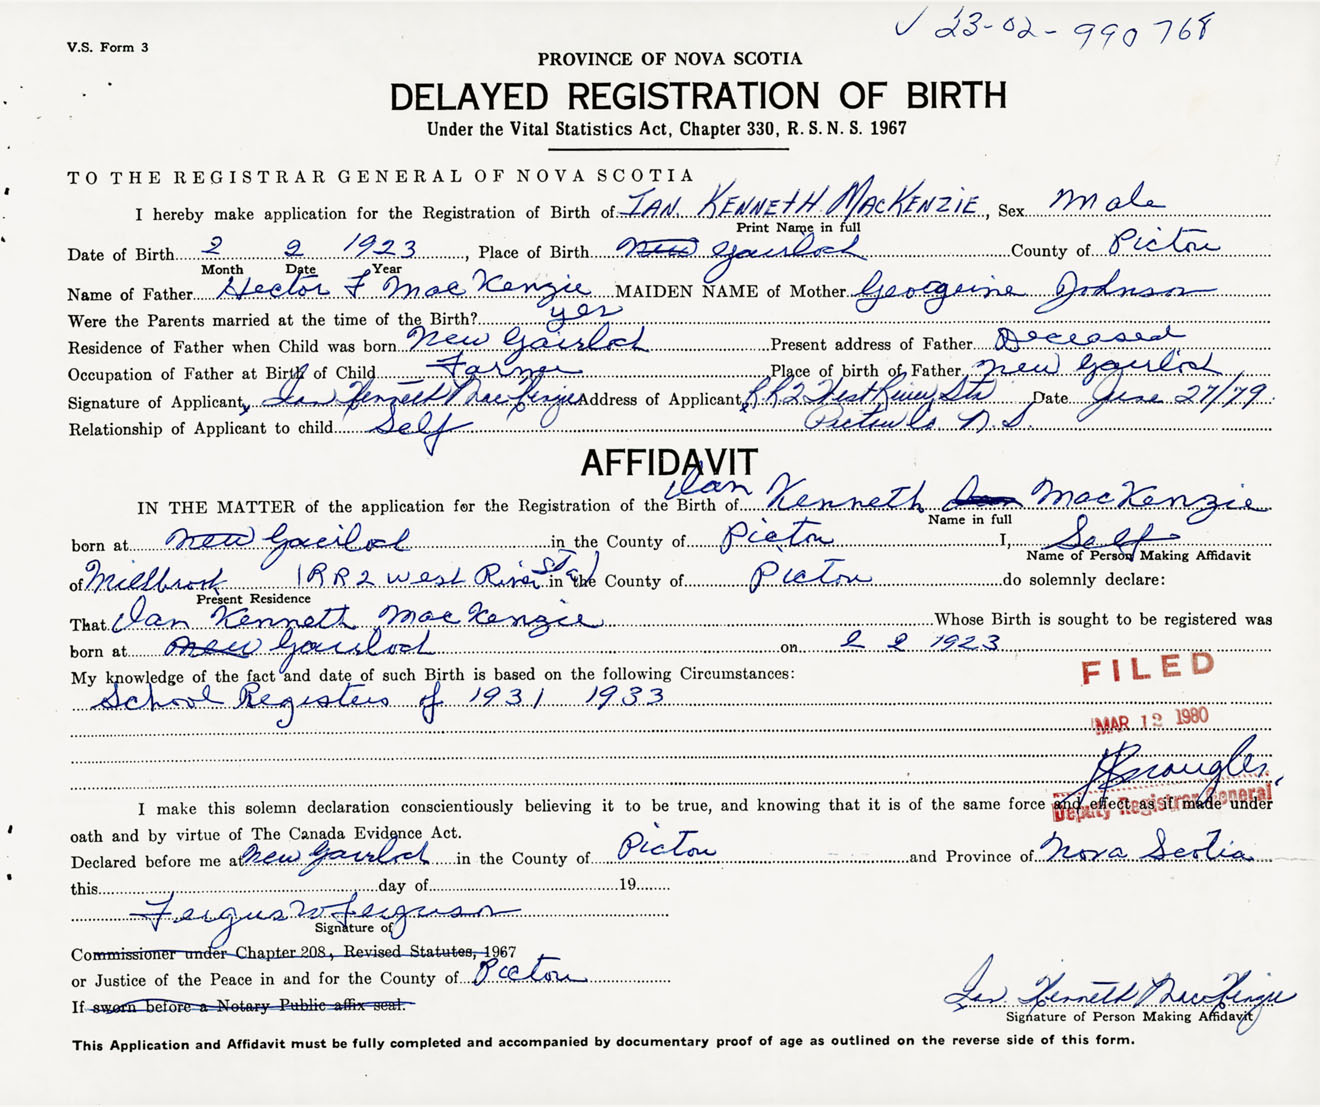 V.S. Form 3
✓ 23-02-990768
PROVINCE OF NOVA SCOTIA
DELAYED REGISTRATION OF BIRTH
Under the Vital Statistics Act, Chapter 330, R. S. N. S. 1967
TO THE REGISTRAR GENERAL OF NOVA SCOTIA
I hereby make application for the Registration of Birth of IAN KENNETH MACKENZIE, Sex Male
Print Name in full
Date of Birth 2 2 1923, Place of Birth New Gairloch County of Pictou
Month Date Year
Name of Father Hector F MacKenzie MAIDEN NAME of Mother Georgeine Johnson
Were the Parents married at the time of the Birth? yes
Residence of Father when Child was born New Gairloch Present address of Father Deceased
Occupation of Father at Birth of Child Farmer Place of birth of Father New Gairloch
Signature of Applicant x Ian Kenneth MacKenzie Address of Applicant RR2 West River Sta Date June 27/79
Relationship of Applicant to child Self Pictou Co N.S.
AFFIDAVIT
IN THE MATTER of the application for the Registration of the Birth of Ian Kenneth Ian MacKenzie
Name in full
born at New Gairloch in the County of Pictou I, Self
Name of Person Making Affidavit
of Millbrook (RR2 West River Sta) in the County of Pictou do solemnly declare:
Present Residence
That Ian Kenneth MacKenzie Whose Birth is sought to be registered was
born at New Gairloch on 2 2 1923
My knowledge of the fact and date of such Birth is based on the following Circumstances:
School Registers of 1931 1933
FILED
MAR 12 1980
Deputy Registrar General
I make this solemn declaration conscientiously believing it to be true, and knowing that it is of the same force and effect as if made under
oath and by virtue of The Canada Evidence Act.
Declared before me at New Gairloch in the County of Pictou and Province of Nova Scotia
this day of 19
Fergus W Ferguson
Signature of
Commissioner under Chapter 208, Revised Statutes, 1967
or Justice of the Peace in and for the County of Pictou
If sworn before a Notary Public affix seal.
Ian Kenneth MacKenzie
Signature of Person Making Affidavit
This Application and Affidavit must be fully completed and accompanied by documentary proof of age as outlined on the reverse side of this form.